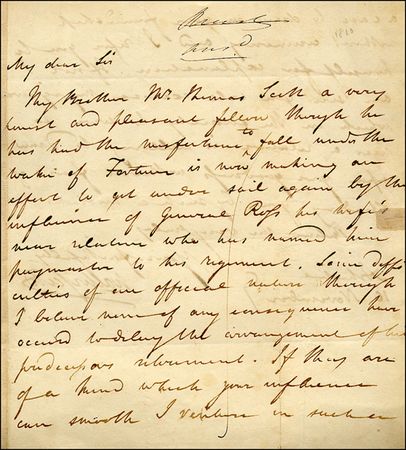 1810
My dear Sir
My Brother Mr. Thomas Scott a very
honest and pleasant fellow though he
has had the misfortune to fall under the
wake of Fortune is now making an
effort to get under sail again by the
influence of General Ross his wife's
near relative who has named him
paymaster to his regiment. Some diffi
culties of an official nature though
I believe none of any consequence have
occurd to delay the arrangement of his
predecessors retirement. If they are
of a kind which your influence
can smooth I venture in such a